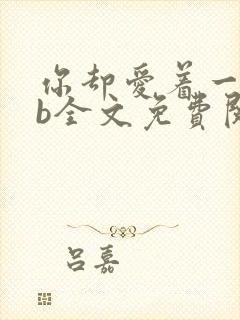 你却爱着一
b全文免費閱
吕嘉